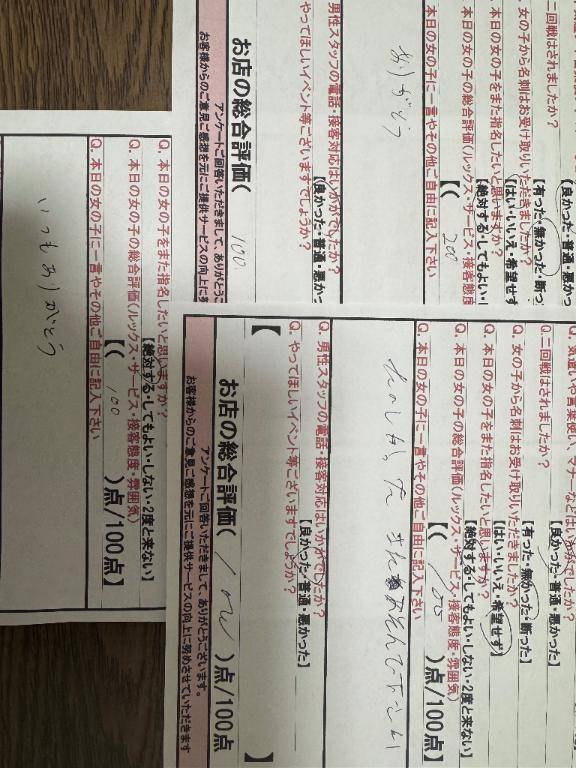 二回戦はされましたか？
【良かった・普通・悪かっ
女の子から名刺はお受け取りいただきましたか？
【有った・無かった・断っ
本日の女の子をまた指名したいと思いますか？
【はい・いいえ・希望せず
【絶対する・してもよい・し
本日の女の子の総合評価（ルックス・サービス・接客態度
【（ 200
本日の女の子に一言やその他ご自由に記入下さい
ありがとう
男性スタッフの電話・接客対応はいかがでしたか？
【良かった・普通・悪かっ
やってほしいイベント等ございますでしょうか？
お店の総合評価（ 100
アンケートご回答いただきまして、ありがとうご
お客様からのご意見ご感想を元にご提供サービスの向上に努
Q. 本日の女の子をまた指名したいと思いますか？
【絶対する・してもよい・しない・2度と来ない】
Q. 本日の女の子の総合評価（ルックス・サービス・接客態度・雰囲気）
【（ 100 ）点/100点】
Q. 本日の女の子に一言やその他ご自由に記入下さい
いつもありがとう
Q. 気遣いや言葉使い、マナーなどはいかがでしたか？
【良かった・普通・悪かった】
Q. 二回戦はされましたか？
【有った・無かった・断った】
Q. 女の子から名刺はお受け取りいただきましたか？
【はい・いいえ・希望せず】
Q. 本日の女の子をまた指名したいと思いますか？
【絶対する・してもよい・しない・2度と来ない】
Q. 本日の女の子の総合評価（ルックス・サービス・接客態度・雰囲気）
【（ 100 ）点/100点】
Q. 本日の女の子に一言やその他ご自由に記入下さい
たのしかった またあそんで下さい
Q. 男性スタッフの電話・接客対応はいかがでしたか？
【良かった・普通・悪かった】
Q. やってほしいイベント等ございますでしょうか？
【 】
お店の総合評価（ 100 ）点/100点
アンケートご回答いただきまして、ありがとうございます。
お客様からのご意見ご感想を元にご提供サービスの向上に努めさせていただきます